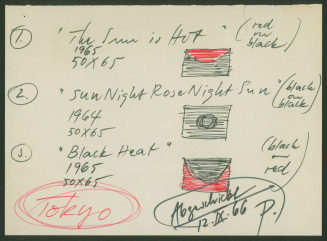 1. "The Sun is Hot" (red on black)
1965
50X65
2. "Sun Night Rose Night Sun" (black on black)
1964
50x65
3. "Black Heat" (black on red)
1965
50x65
Tokyo
Abgeschickt
12. IX. 66 P.